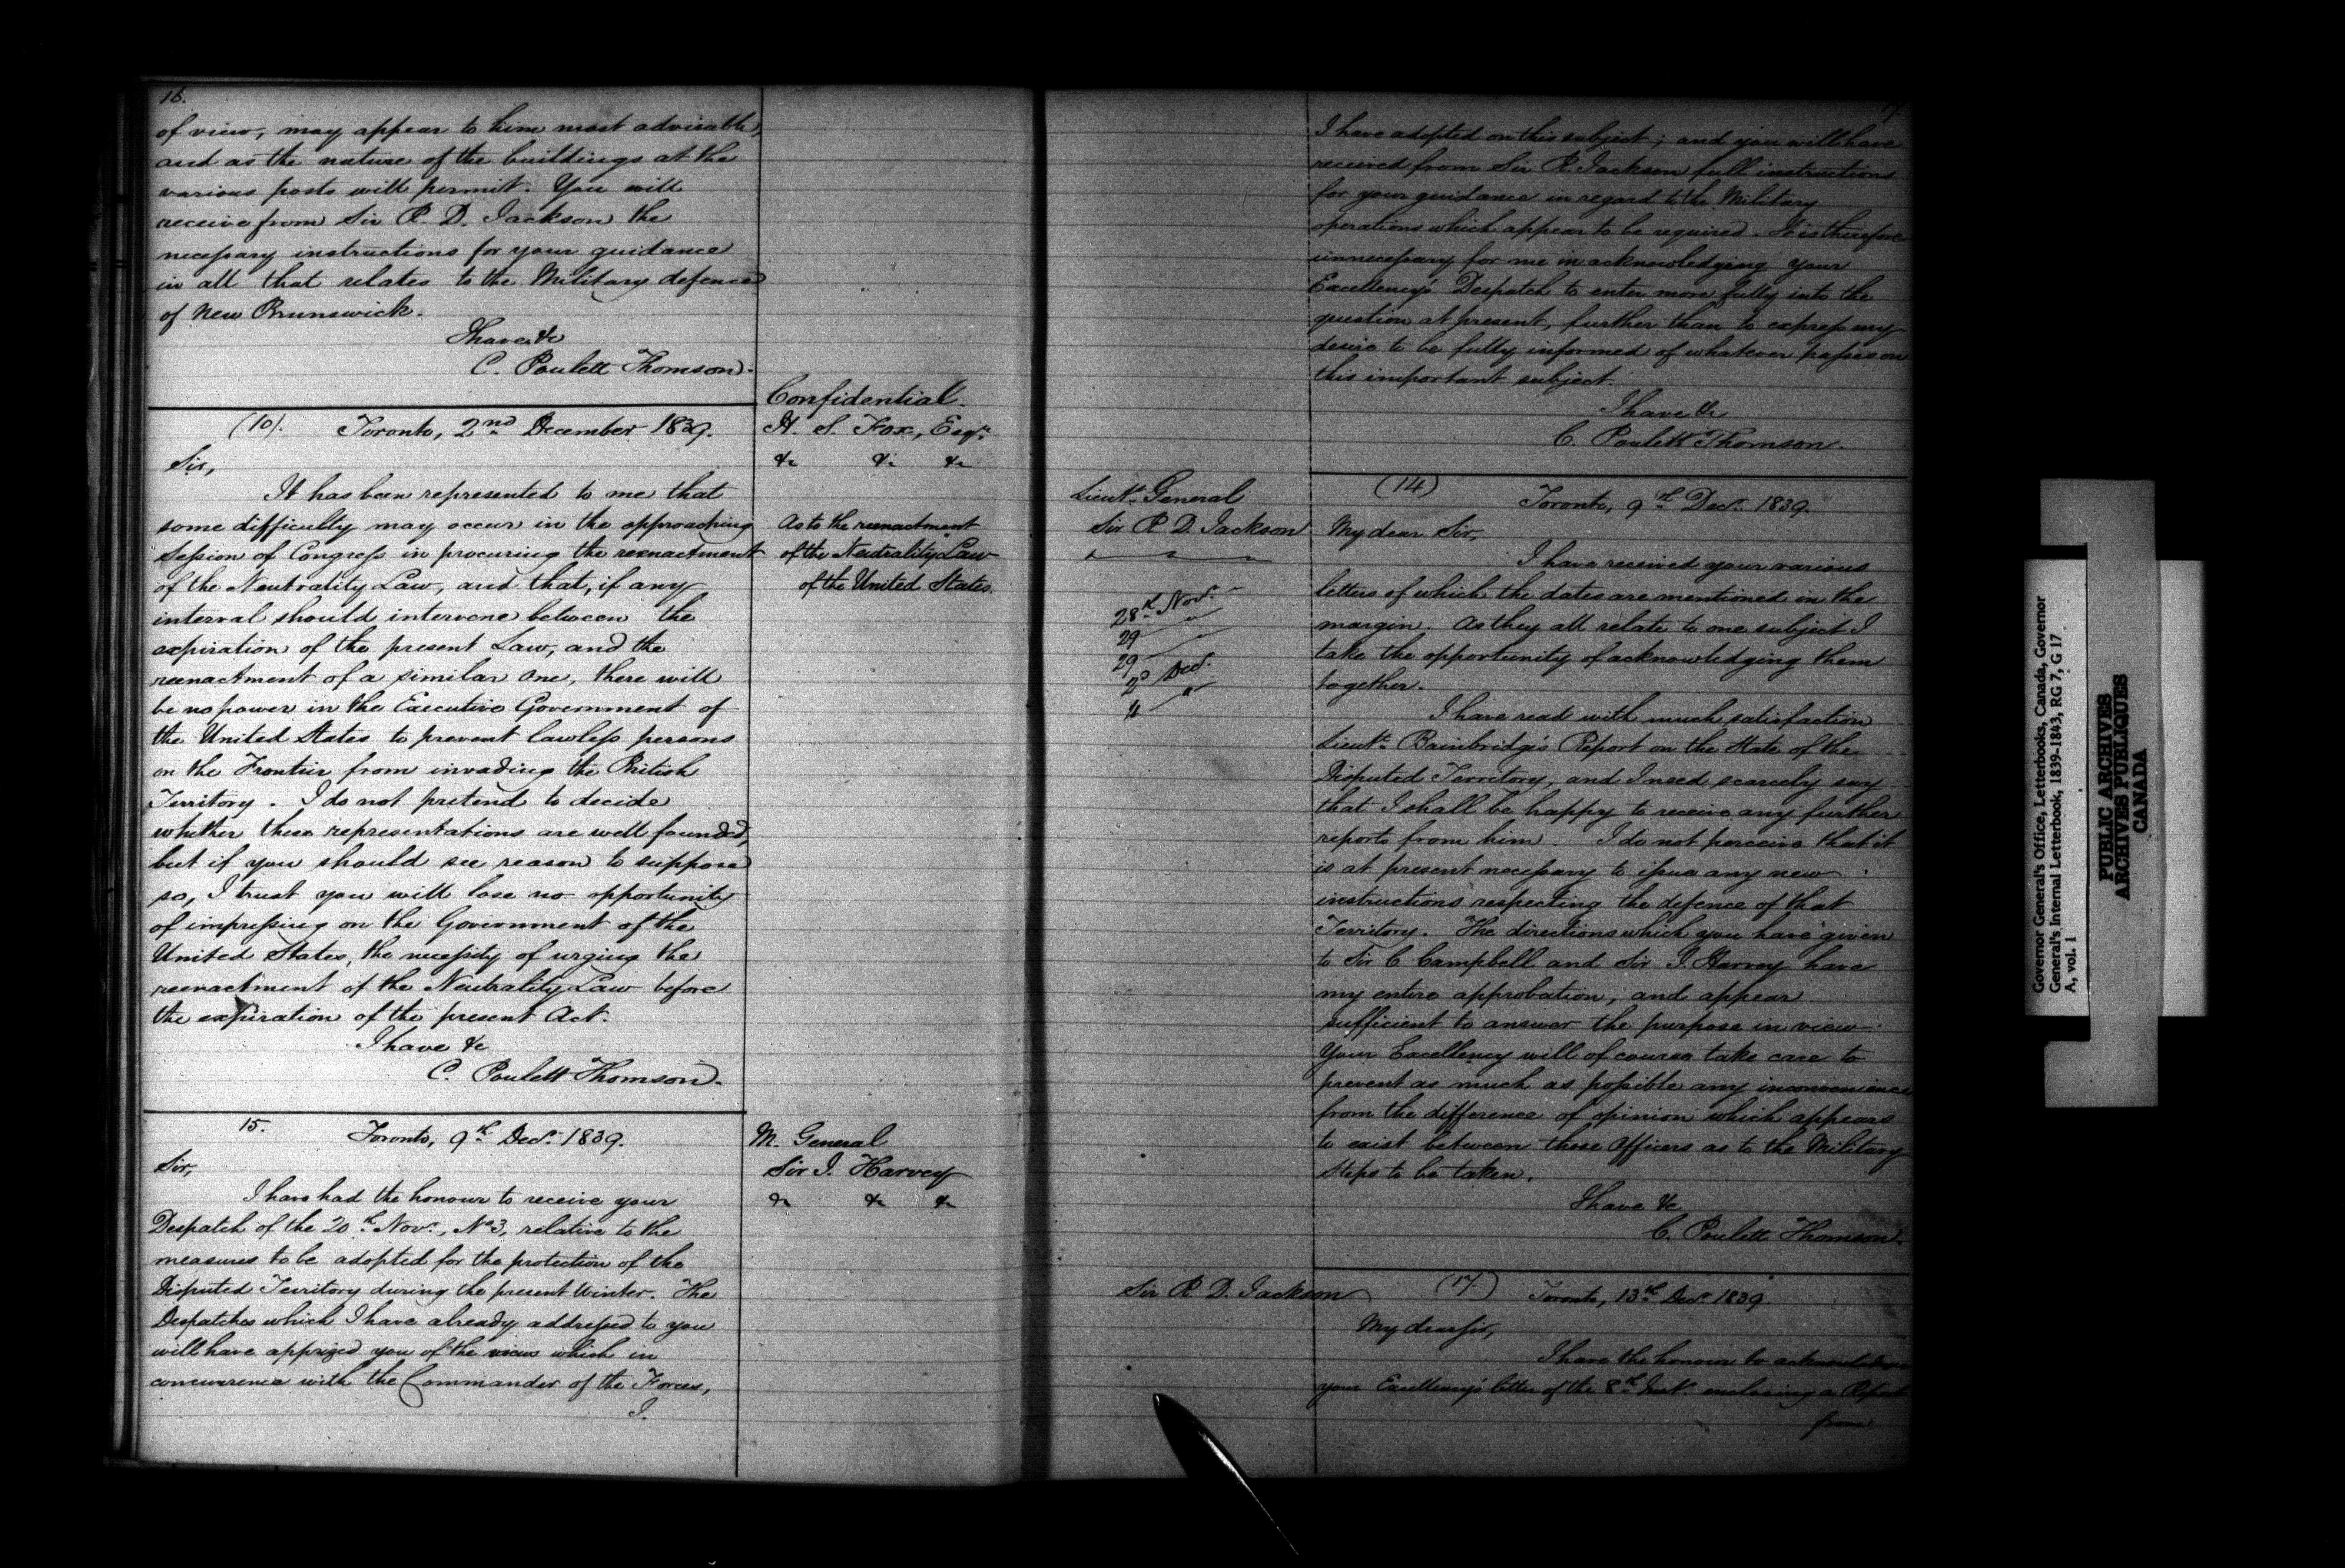 16.
of view, may appear to him most advisable,
and as the nature of the buildings at the
various posts will permit. You will
receive from Sir R. D. Jackson the
necessary instructions for your guidance
in all that relates to the Military defence
of New Brunswick.
I have &c
C. Poulett Thomson.
(10). Toronto, 2nd December 1839.
Confidential.
H. S. Fox, Esqr.
&c &c &c
As to the reenactment
of the Neutrality Law
of the United States.
Sir,
It has been represented to me that
some difficulty may occur in the approaching
Session of Congress in procuring the reenactment
of the Neutrality Law, and that, if any
interval should intervene between the
expiration of the present Law, and the
reenactment of a similar one, there will
be no power in the Executive Government of
the United States to prevent lawless persons
on the Frontier from invading the British
Territory. I do not pretend to decide
whether these representations are well founded,
but if you should see reason to suppose
so, I trust you will lose no opportunity
of impressing on the Government of the
United States, the necessity of urging the
reenactment of the Neutrality Law before
the expiration of the present Act.
I have &c
C. Poulett Thomson.
15. Toronto, 9th Decr. 1839.
M. General
Sir J. Harvey
&c &c &c
Sir,
I have had the honour to receive your
Despatch of the 20th Novr., No 3, relative to the
measures to be adopted for the protection of the
Disputed Territory during the present Winter. The
Despatches which I have already addressed to you
will have apprized you of the views which in
concurrence with the Commander of the Forces,
I.
17.
I have adopted on this subject; and you will have
received from Sir R. Jackson full instructions
for your guidance in regard to the Military
operations which appear to be required. It is therefore
unnecessary for me in acknowledging your
Excellency's Despatch to enter more fully into the
question at present, further than to express my
desire to be fully informed of whatever passes on
this important subject.
I have &c
C. Poulett Thomson.
Lieut. General
Sir R D. Jackson
28th Nov.
29 "
29
2d Decr.
4 "
(14) Toronto, 9th Decr. 1839.
My dear Sir,
I have received your various
letters of which the dates are mentioned in the
margin. As they all relate to one subject I
take the opportunity of acknowledging them
together.
I have read with much satisfaction
Lieut. Bainbridge's Report on the State of the
Disputed Territory, and I need scarcely say
that I shall be happy to receive any further
reports from him. I do not perceive that it
is at present necessary to issue any new
instructions respecting the defence of that
Territory. The directions which you have given
to Sir C Campbell and Sir J. Harvey have
my entire approbation, and appear
sufficient to answer the purpose in view.
Your Excellency will of course take care to
prevent as much as possible any inconvenience
from the difference of opinion which appears
to exist between these Officers as to the Military
steps to be taken.
I have &c
C. Poulett Thomson.
Sir R D. Jackson
(17.) Toronto, 13th Decr. 1839.
My dear Sir,
I have the honour to acknowledge
your Excellency's letter of the 8th Inst. enclosing a Report
from
Governor General's Office, Letterbooks, Canada, Governor
General's Internal Letterbook, 1839-1843, RG 7, G 17
A, vol. 1
PUBLIC ARCHIVES
ARCHIVES PUBLIQUES
CANADA